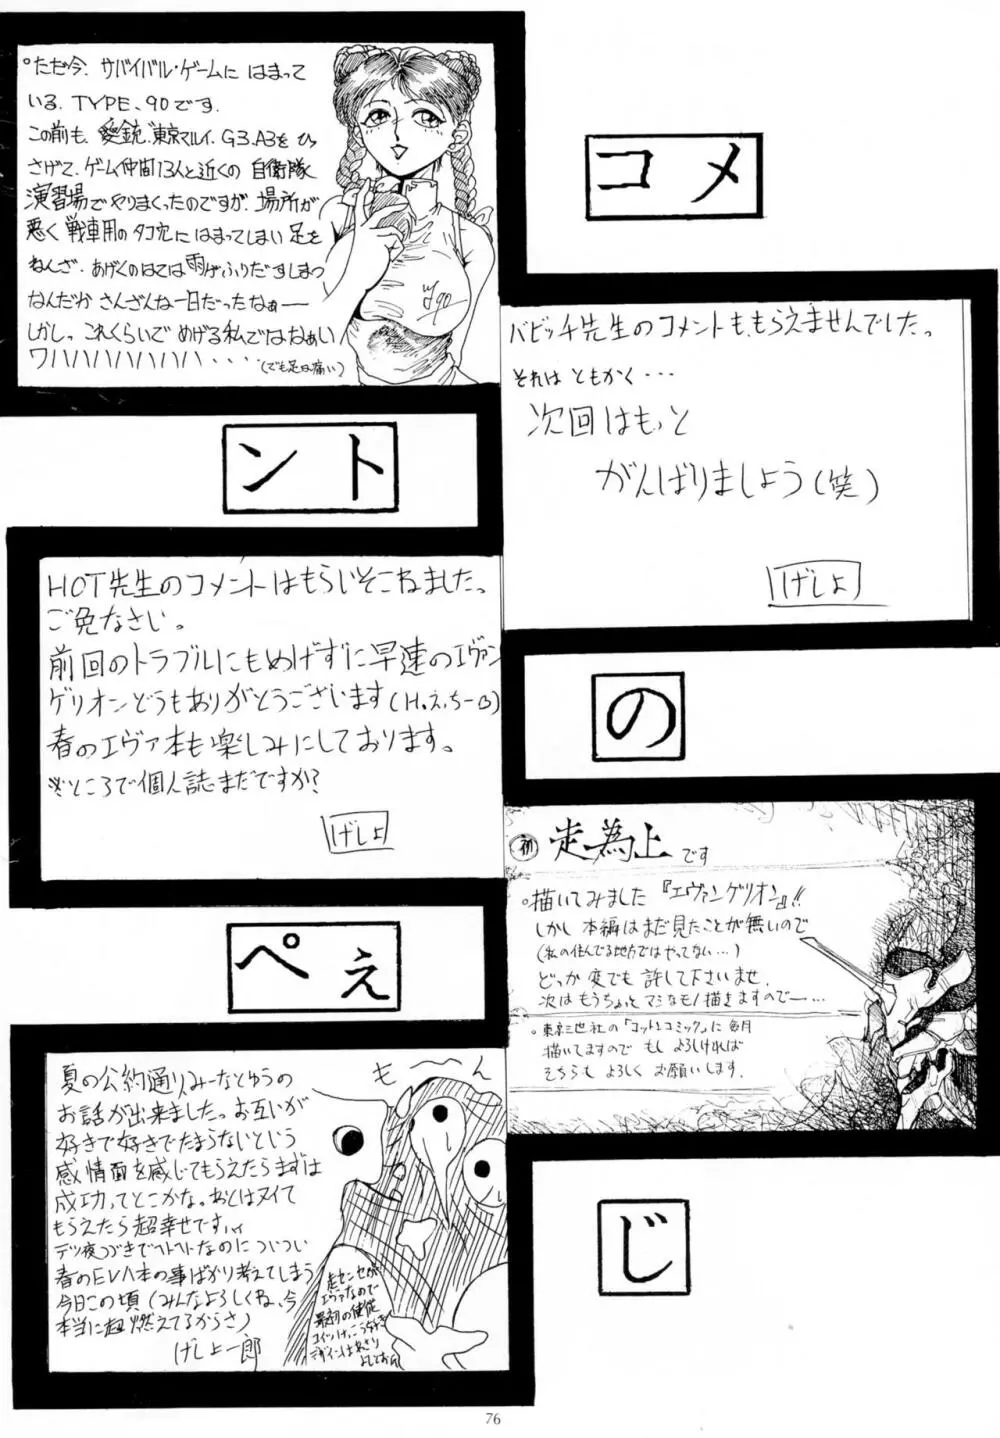 コメ
ント
のぺぇ
じ
°ただ今、サバイバル・ゲームに はまって
いる、TYPE、90です。
この前も、愛銃、東京マルイ、G3.A3を ひっ
さげて、ゲーム仲間13人と近くの 自衛隊
演習場でやりまくったのですが、場所が
悪く 戦車用のタコ穴に はまってしまい 足を
ねんざ、あげくのはては雨がふりだすしまつ
なんだか さんざんな一日だったなぁー
しかし。これくらいで めげる私ではなぁい
ワハハハハハハハハハハ・・・・(でも足は痛い)
バビッチ先生のコメントも、もらえませんでした。
それは ともかく・・・
次回はもっと
がんばりましょう(笑)
げしょ
HOT先生のコメントはもらいそこねました。
ご免なさい。
前回のトラブルにもめげずに早速のエヴァン
ゲリオンどうもありがとうございます(H.え.ちーB)
春のエヴァ本も楽しみにしております。
※ところで個人誌まだですか?
げしょ
初 走為上です
°描いてみました『エヴァンゲリオン』!!
しかし 本編はまだ見たことが無いので
(私の住んでる地方ではやってない…)
どっか変でも 許して下さいませ.
次は もうちょっと マシなもノ描きますのでー・・・
°東京三世社の「コットンコミック」に 毎月
描いてますので もし よろしければ
そちらも よろしく お願いします。
夏の公約通りみーなとゆうの
お話が出来ました。お互いが
好きで好きでたまらないという
感情面を感じてもらえたらまずは
成功ってとこかな。あとはヌイて
もらえたら超幸せですぃ
デツ夜つづきでヘトヘトなのについつい
春のEVA本の事ばかり考えてしまう
今日この頃(みんなよろしくね、今
本当に超燃えてるからさ)
げしょ一郎
も〜ん
走センセが
エヴァなので
最初の使徒
76